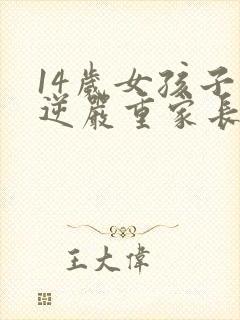 14歲女孩子
逆嚴重家長
王大偉